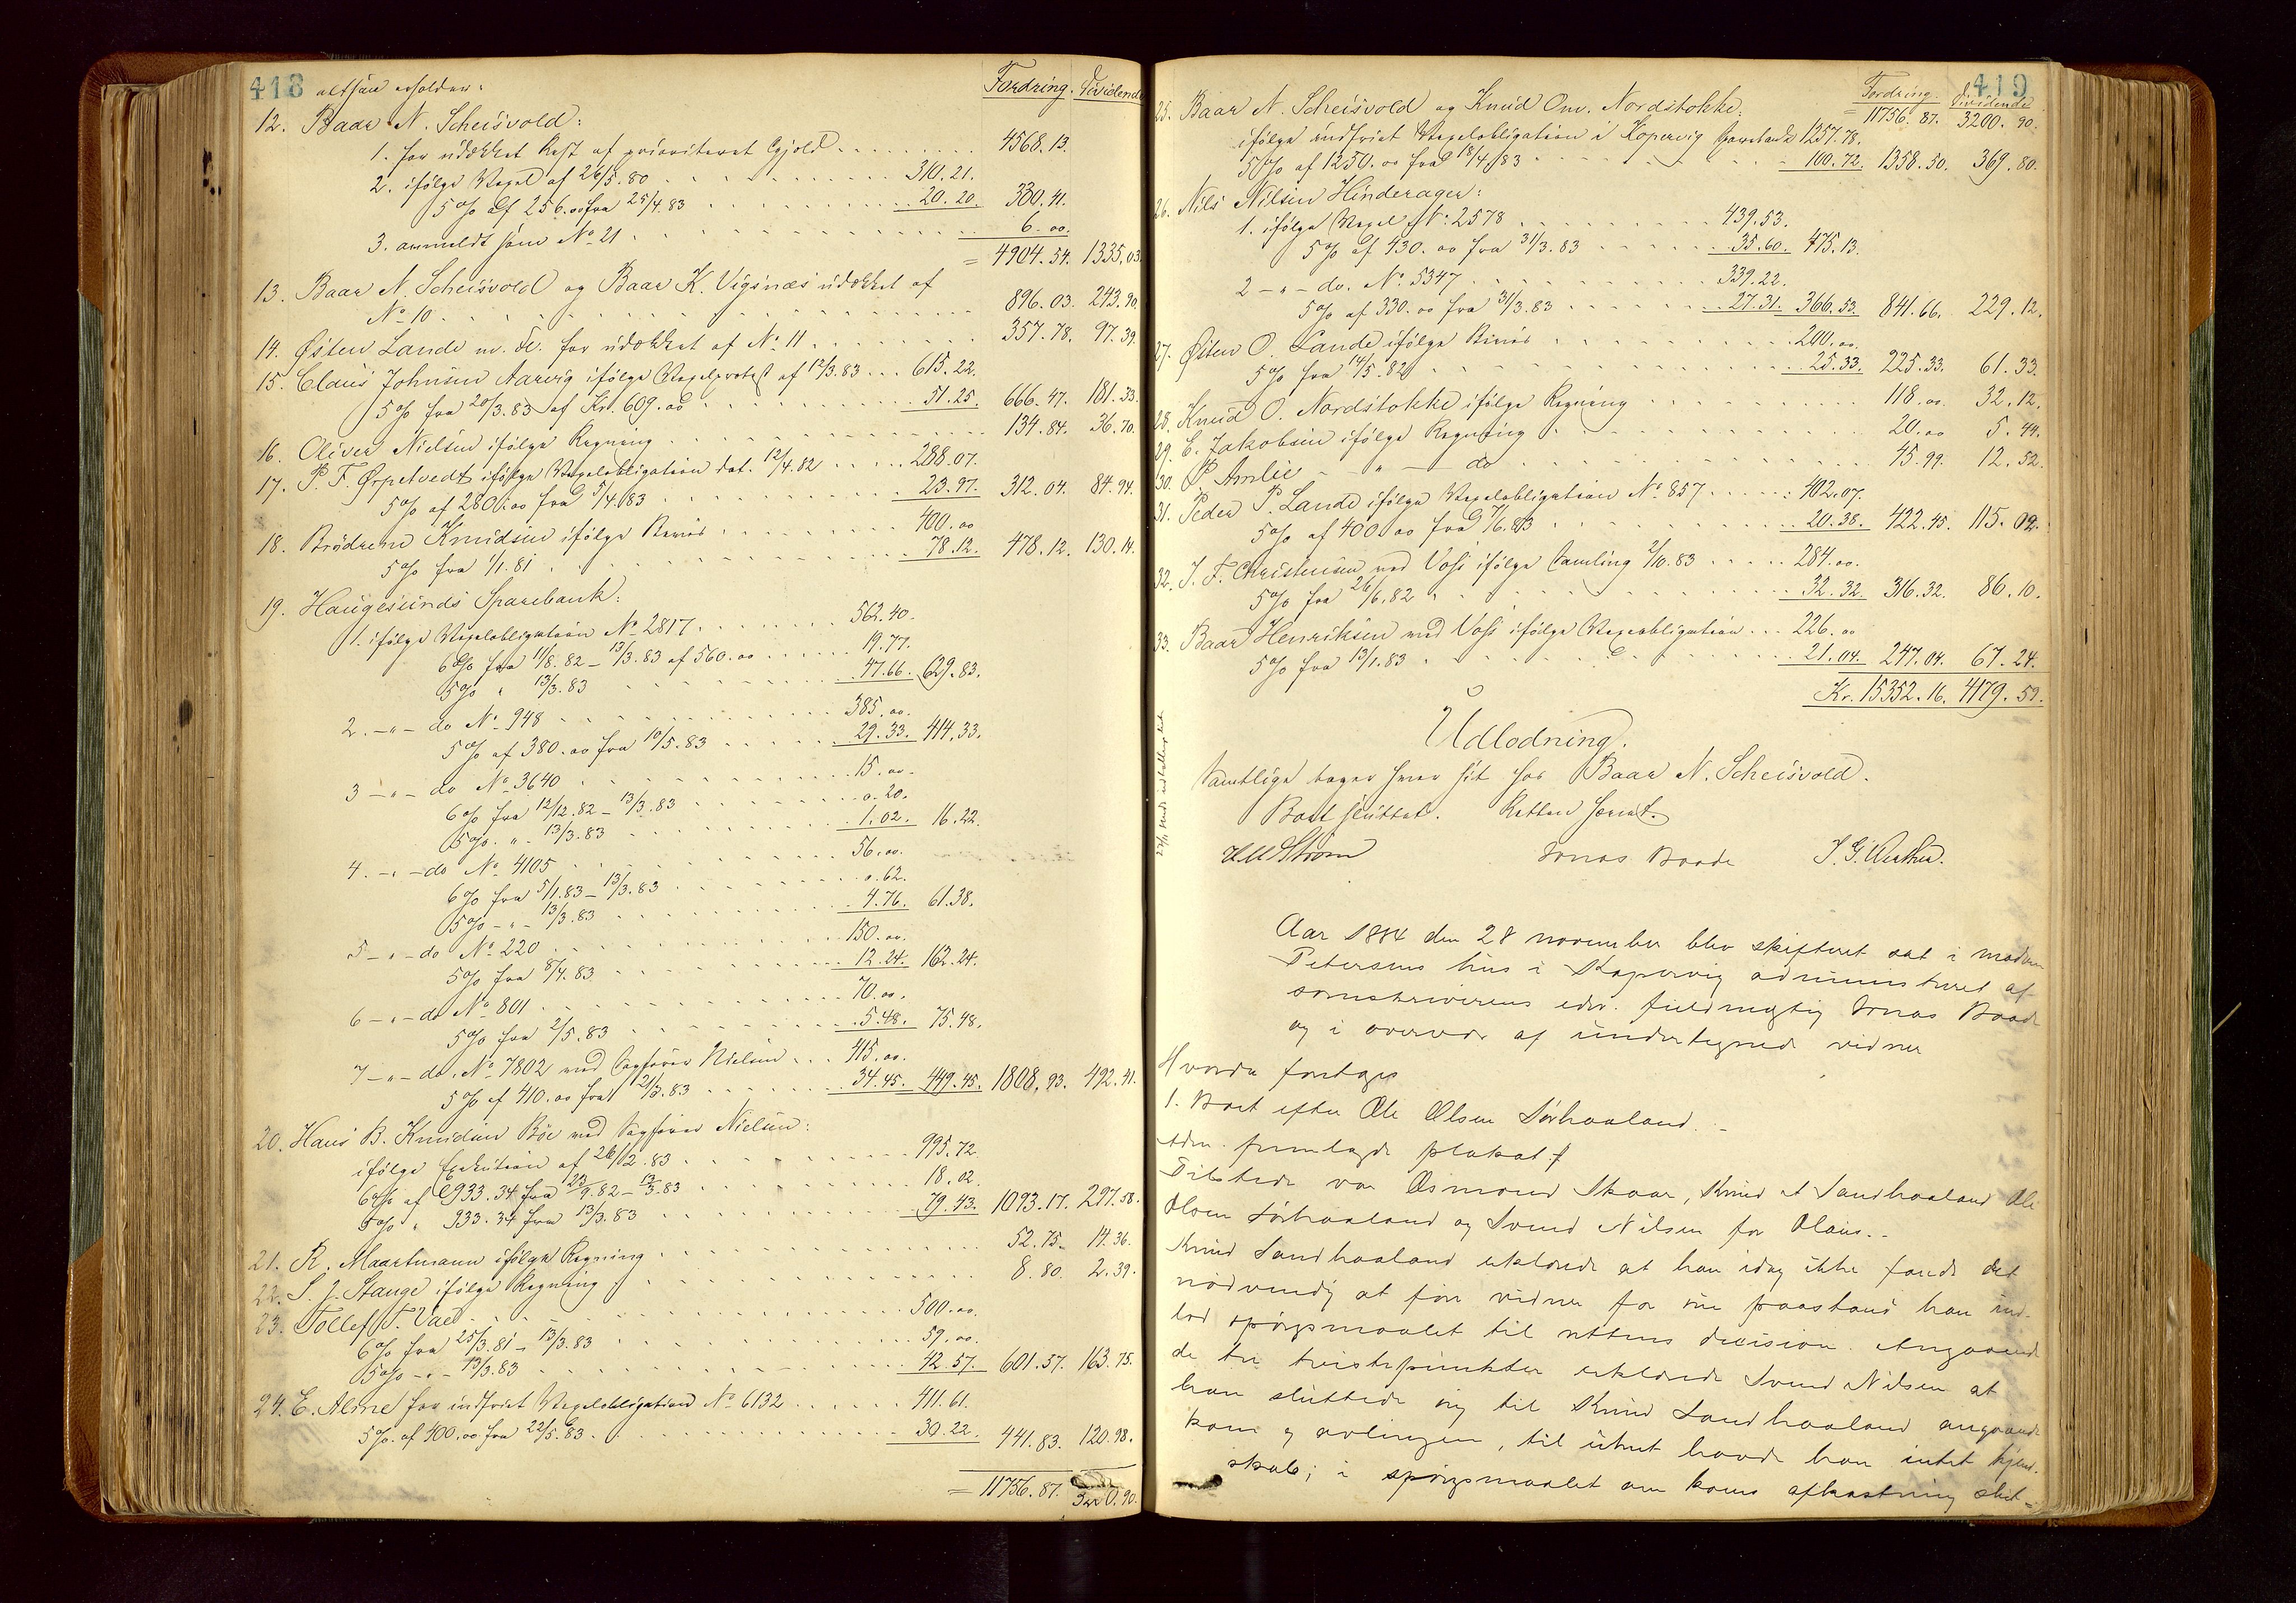 418 altsaa erholder: Fordring. Dividende
12. Baar N. Scheisvold:
1. for udækket Rest af prioriteret Gjeld . . . 4568.13.
2. ifölge Vexel af 26/5.80 . . . 310.21.
5% af 256.00 fra 25/4.83 . . . 20.20. 330.41.
3. anmeldt som No 21 . . . 6.00.
= 4904.54. 1335.03.
13. Baar N. Scheisvold og Baar K. Vigsnæs udækket af
No 10 . . . 896.03. 243.90.
14. Østen Lande m. fl. for udækket af No 11 . . . 357.78. 97.39.
15. Claus Johnsen Aarvig ifölge Vexelprotest af 12/3.83 . . . 615.22.
5% fra 20/3.83 af Kr. 609.00 . . . 51.25. 666.47. 181.33.
16. Oliver Nielsen ifölge Regning . . . 134.84. 36.70.
17. P. T. Ørpetvedt ifölge Vexelobligation dat. 12/4.82 . . . 288.07.
5% af 280.00 fra 5/4.83 . . . 23.97. 312.04. 84.94.
18. Brödrene Knudsen ifölge Bevis . . . 400.00
5% fra 1/1.81 . . . 78.12. 478.12. 130.14.
19. Haugesunds Sparebank:
1. ifölge Vexelobligation No 2817 . . . 562.40.
6% fra 11/8.82 – 13/3.83 af 560.00 . . . 19.77.
5% " 13/3.83 . . . 47.66. 629.83.
2. – " – do No 948 . . . 385.00.
5% af 380.00 fra 10/5.83 . . . 29.33. 414.33.
3 – " – do No 3640 . . . 15.00.
6% fra 12/12.82 – 13/3.83 . . . 0.20.
5% – " – 13/3.83 . . . 1.02. 16.22.
4. – " – do No 4105 . . . 56.00.
6% fra 5/1.83 – 13/3.83 . . . 0.62.
5% – " – 13/3.83 . . . 4.76. 61.38.
5 – " – do No 220 . . . 150.00.
5% fra 8/4.83 . . . 12.24. 162.24.
6 – " – do No 801 . . . 70.00.
5% fra 2/5.83 . . . 5.48. 75.48.
7 – " – do. No 7802 ved Sagförer Nielsen . . . 415.00.
5% af 410.00 fra 21/3.83 . . . 34.45. 449.45. 1808.93. 492.41.
20. Hans B. Knudsen Böe ved Sagförer Nielsen:
ifölge Exekution af 26/12.83 . . . 995.72.
6% af 933.34 fra 23/9.82 – 13/3.83 . . . 18.02.
5% " 933.34 fra 13/3.83 . . . 79.43. 1093.17. 297.58.
21. R. Maartmann ifölge Regning . . . 52.75. 14.36.
22. S. J. Stange ifölge Regning . . . 8.80. 2.39.
23. Tollef T. Vaed . . . 500.00.
6% fra 25/3.81 – 13/3.83 . . . 59.00.
5% – " – 13/3.83 . . . 42.57. 601.57. 163.75.
24. E. Alme for indfriet Vexelobligation No 6132 . . . 411.61.
5% af 400.00 fra 22/5.83 . . . 30.22. 441.83. 120.98.
= 11756.87. 3200.90.
419
Fordring. Dividende
= 11756.87. 3200.90.
25. Baar N. Scheisvold og Knud Om. Nordstokke:
ifölge indfriet Vexelobligation i Kopervig Sparebank 1257.78.
5% af 1250.00 fra 18/4.83 . . . 100.72. 1358.50. 369.80.
26. Nils Nilsen Hinderager:
1. ifölge Vexel No 2578 . . . 439.53.
5% af 430.00 fra 31/3.83 . . . 35.60. 475.13.
2 – " – do. No 5347 . . . 339.22.
5% af 330.00 fra 31/3.83 . . . 27.31. 366.53. 841.66. 229.12.
27. Østen O. Lande ifölge Bevis . . . 200.00.
5% fra 14/5.82 . . . 25.33. 225.33. 61.33.
28. Knud O. Nordstokke ifölge Regning . . . 118.00. 32.12.
29. E. Jakobsen ifölge Regning . . . 20.00 5.44.
30. P. Amlie – " – do . . . 45.99. 12.52.
31. Peder P. Lande ifölge Vexelobligation No 857 . . . 402.07.
5% af 400.00 fra 7/6.83 . . . 20.38. 422.45. 115.02.
32. J. F. Christensen ved Voss ifölge Samling 2/10.83 . . . 284.00.
5% fra 26/6.82 . . . 32.32. 316.32. 86.10.
33. Baar Henriksen ved Voss ifölge Vexelobligation . . . 226.00
5% fra 13/1.83 . . . 21.04. 247.04. 67.24.
Kr. 15352.16. 4179.59.
Udlodning.
Samtlige tager hver sit hos Baar N. Scheisvold.
Boet sluttet. Retten hævet.
Jonas Baade
Aar 1884 den 28 november blev skifteret sat i madam
Petersens hus i Kopervig administreret af
sorenskriverens edsv. fuldmægtig Jonas Baade
og i overvær af undertegnede vidner
Hvorda foretages
1. Boet efter Ole Olsen Sørhaaland. –
Adm. fremlagde plakat.
Tilstede var Osmond Skaar, Knud A Sandhaaland Ole
Olsen Sørhaaland og Svend Nilsen for Olaus. –
Knud Sandhaaland erklærede at han idag ikke fandt det
nødvendig at føre vidner for sine paastand han ind-
lod spørgsmaalet til rettens decision. Angaaende
de tre tvistepunkter erklærede Svend Nilsen at
han sluttede sig til Knud Sandhaaland angaaende
korn og avlingen, til uhret havde han intet kjend-
skab; i spørgsmaalet om korns afkastning slut=